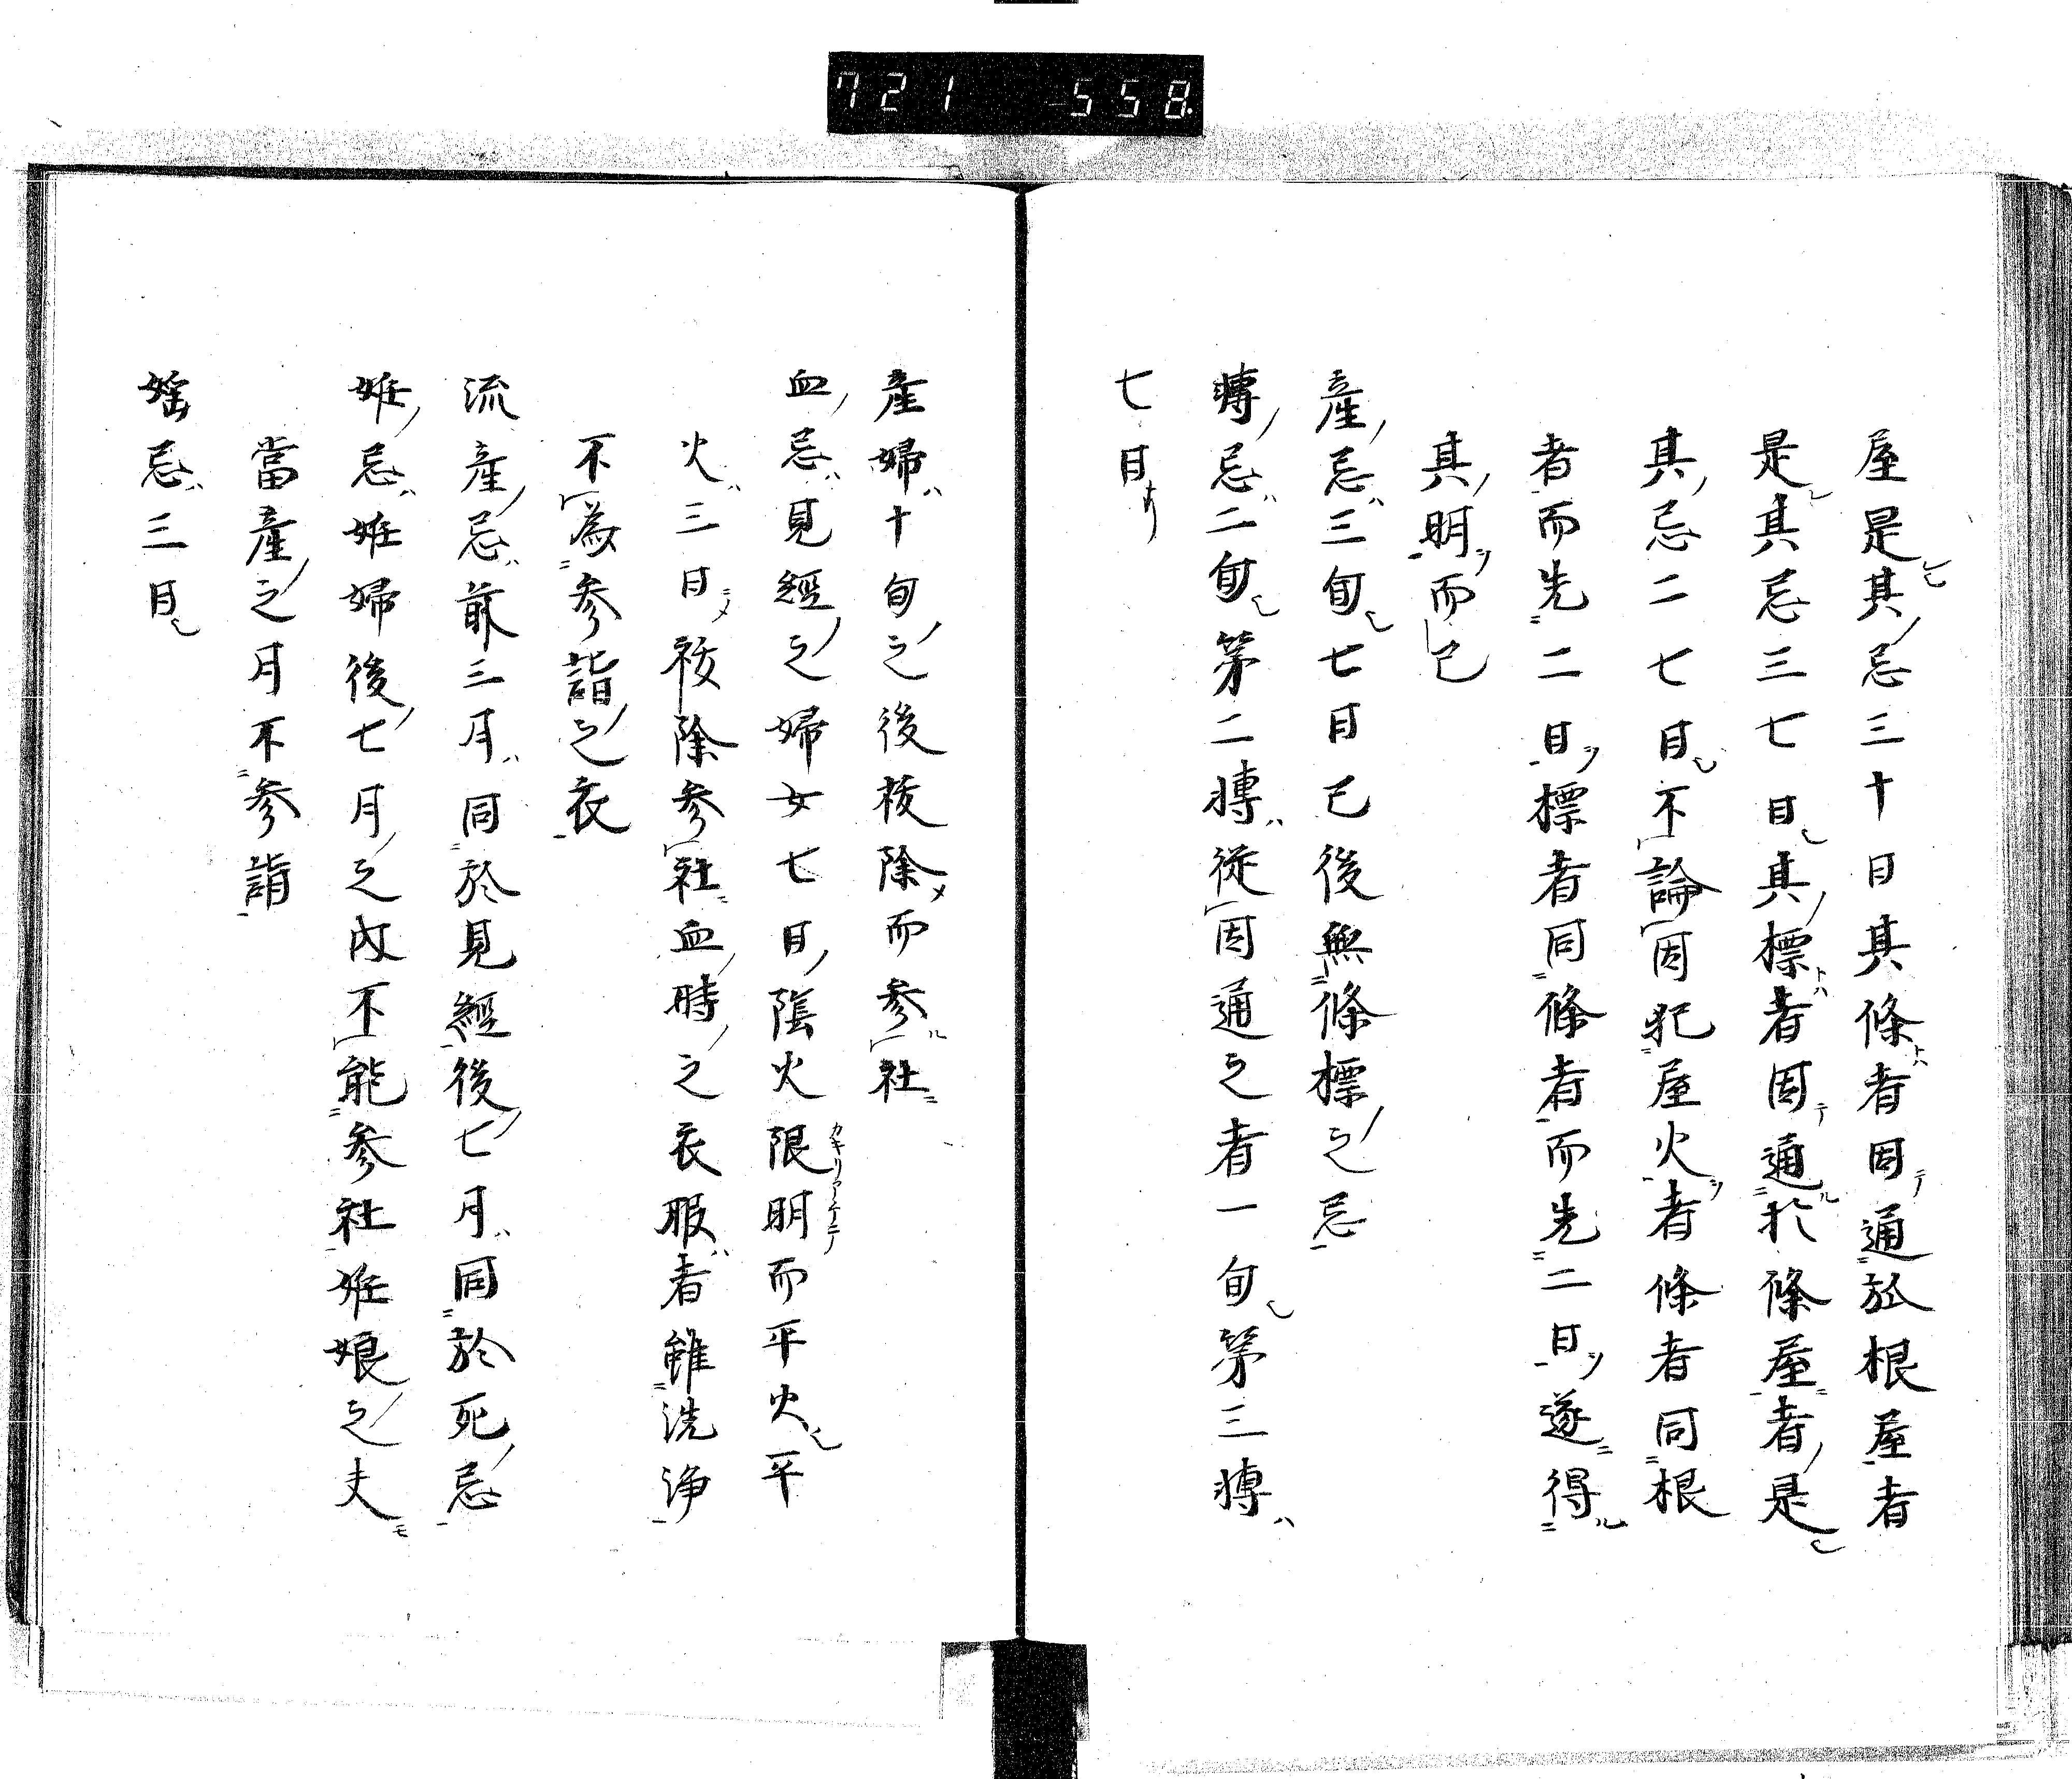 721 558
屋是其忌三十日其條者因通於根屋者
是其忌三七日其標者因通於條屋者是
其忌二七日不論因犯屋火者條者同根
者而先二日標者同條者而先二日遂得
其明而已
産忌三旬七日已後無條標之忌
轉忌二旬第二轉從因通之者一旬第三轉
七日
産婦十旬之後祓除而参社
血忌見經之婦女七日陰火限明而平火平
カキリアケテ
火三日祓除参社血時之衣服者雖洗浄
不為参詣之衣
流産忌前三月同於見經後七月同於死忌
妊忌妊婦後七月之内不能参社妊娘之夫
當産之月不参詣
婬忌三日